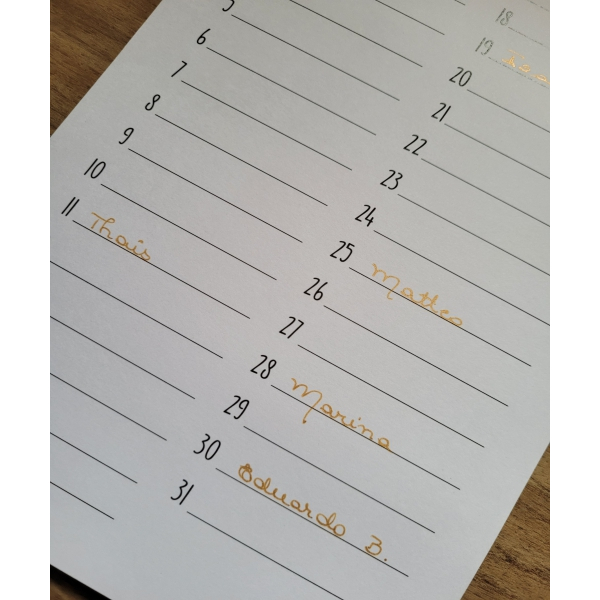 5
6
7
8
9
10
11 Thais
18
19
20
21
22
23
24
25 Matteo
26
27
28 Marina
29
30 Eduardo B.
31